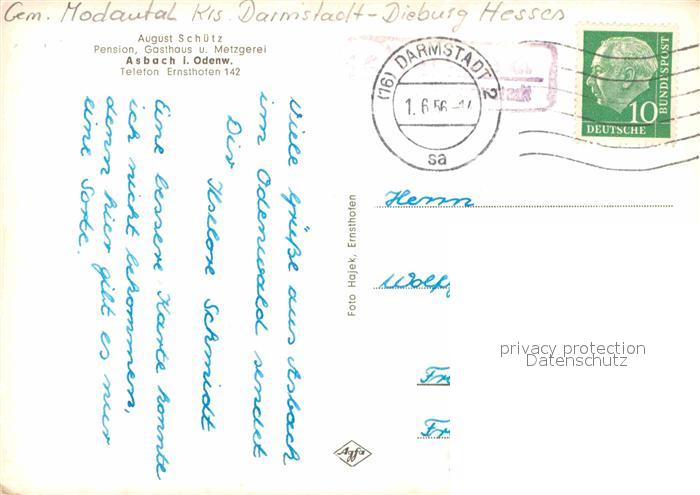 Gem. Modautal Krs. Darmstadt-Dieburg Hessen
August Schütz
Pension, Gasthaus u. Metzgerei
Asbach i. Odenw.
Telefon Ernsthofen 142
Viele Grüße aus Asbach
im Odenwald sendet
Dir
Ilselore Schmidt
Eine bessere Karte konnte
ich nicht bekommen,
denn hier gibt es nur
eine Sorte.
Foto Hajek, Ernsthofen
Agfa
(16) DARMSTADT 2
1.6.56
sa
10
DEUTSCHE
BUNDESPOST
Herrn
Wolfg
Fr
Fr
privacy protection
Datenschutz